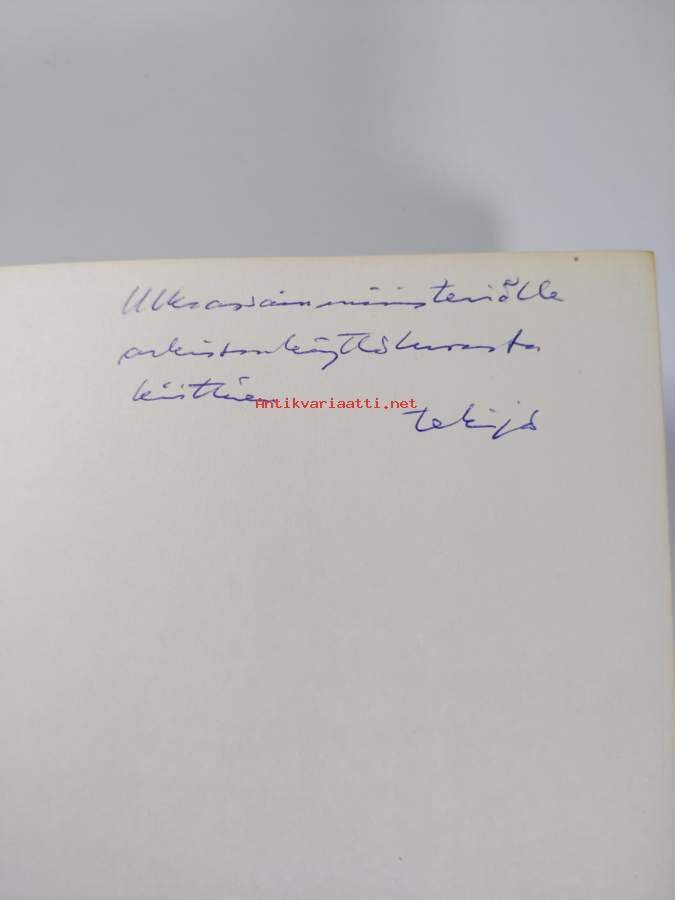 Ulkoasiainministeriölle
arkistonkäyttöluvasta
kiittäen
Antikvariaatti.net
tekijä